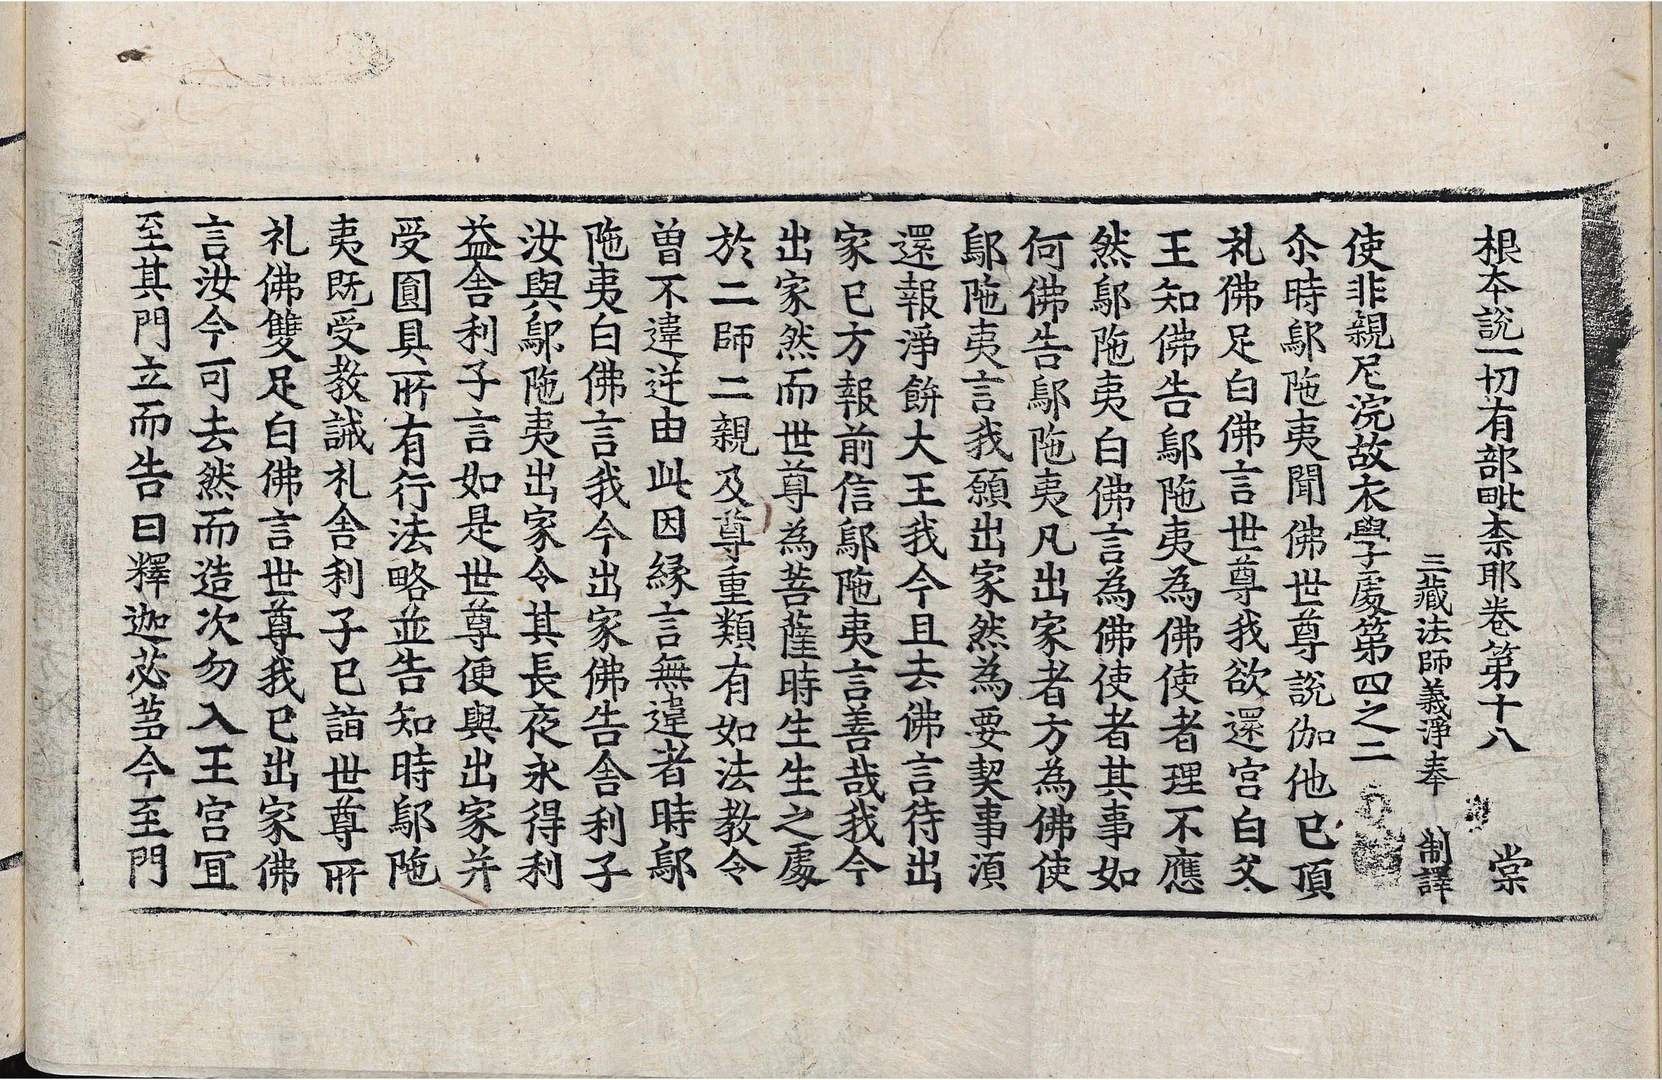 根本說一切有部毗柰耶卷第十八 棠
三藏法師義淨奉 制譯
使非親尼浣故衣學子處第四之二
尒時鄔陁夷聞佛世尊說伽他已頂
礼佛足白佛言世尊我欲還宫白父
王知佛告鄔陁夷為佛使者理不應
然鄔陁夷白佛言為佛使者其事如
何佛告鄔陁夷凡出家者方為佛使
鄔陁夷言我願出家然為要契事須
還報淨飯大王我今且去佛言待出
家已方報前信鄔陁夷言善哉我今
出家然而世尊為菩薩時生生之處
於二師二親及尊重類有如法教令
曾不違逆由此因緣言無違者時鄔
陁夷白佛言我今出家佛告舍利子
汝與鄔陁夷出家令其長夜永得利
益舍利子言如是世尊便與出家并
受圓具所有行法略並告知時鄔陁
夷既受教誡礼舍利子已詣世尊所
礼佛雙足白佛言世尊我已出家佛
言汝今可去然而造次勿入王宫冝
至其門立而告曰釋迦苾芻今至門